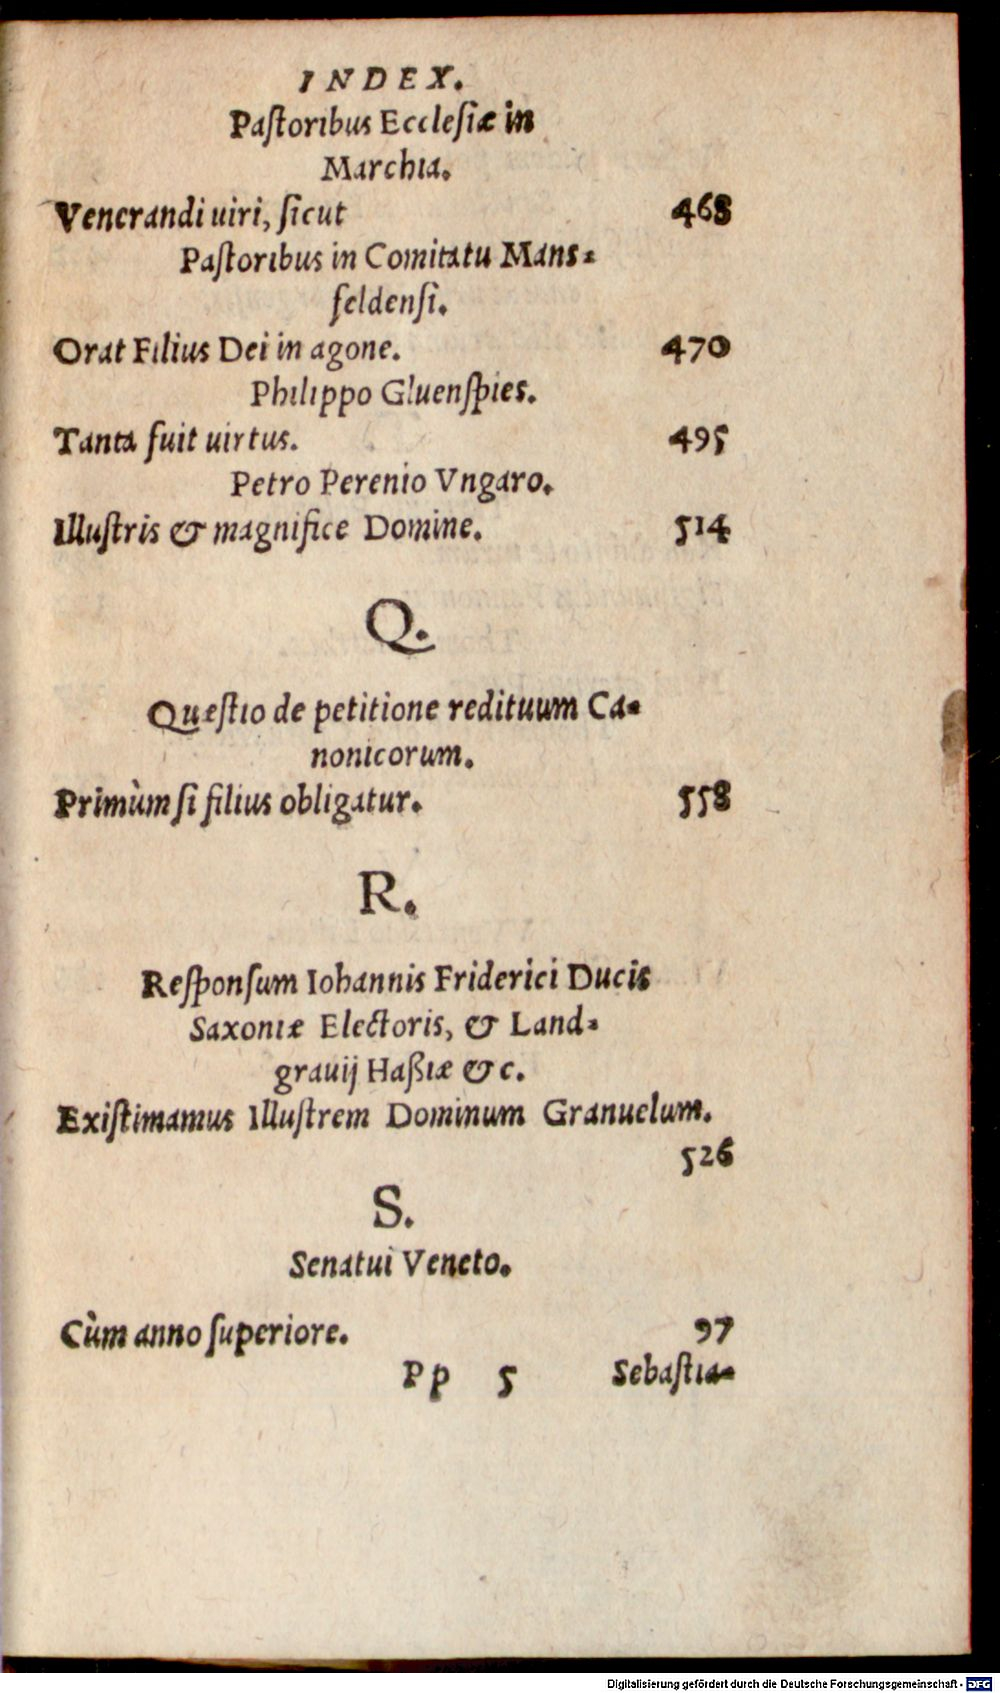 INDEX.
Paſtoribus Eccleſiæ in
Marchia.
Venerandi uiri, ſicut 468
Paſtoribus in Comitatu Mans-
feldenſi.
Orat Filius Dei in agone. 470
Philippo Gluenſpies.
Tanta fuit uirtus. 495
Petro Perenio Vngaro.
Illuſtris & magnifice Domine. 514
Q.
Quæſtio de petitione redituum Ca-
nonicorum.
Primùm ſi filius obligatur. 558
R.
Reſponſum Iohannis Friderici Ducis
Saxoniæ Electoris, & Land-
grauij Haßiæ &c.
Exiſtimamus Illuſtrem Dominum Granuelum.
526
S.
Senatui Veneto.
Cùm anno ſuperiore. 97
Pp 5 Sebaſtia-
Digitalisierung gefördert durch die Deutsche Forschungsgemeinschaft - DFG